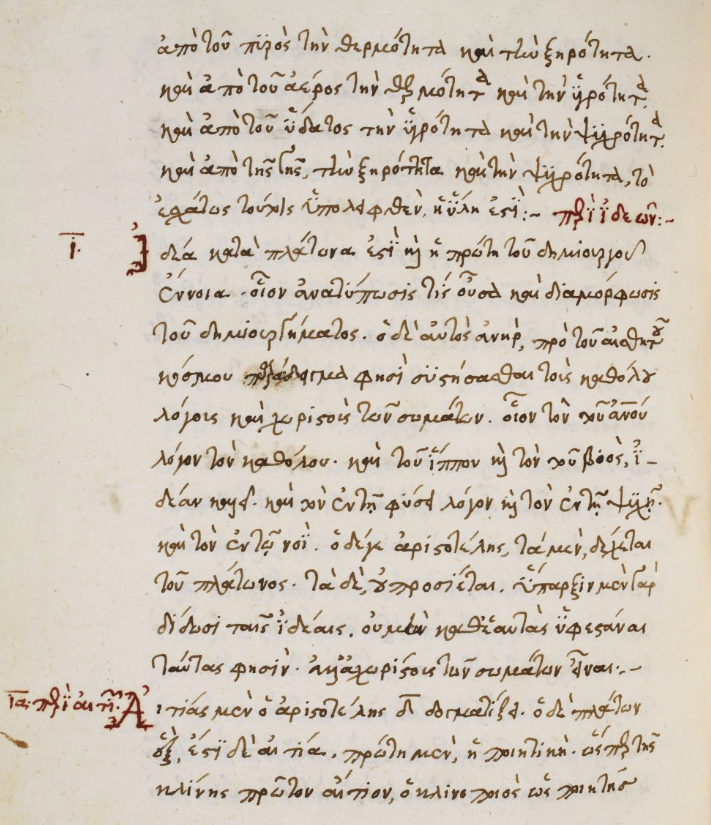 ἀπὸ τοῦ πυρὸς τὴν θερμότητα καὶ τὴν ξηρότητα.
καὶ ἀπὸ τοῦ ἀέρος τὴν θερμότητα καὶ τὴν ὑγρότητα.
καὶ ἀπὸ τοῦ ὕδατος τὴν ὑγρότητα καὶ τὴν ψυχρότητα.
καὶ ἀπὸ τῆς γῆς, τὴν ξηρότητα καὶ τὴν ψυχρότητα, τὸ
ἐσχάτως ὑπολειφθὲν, ἡ ὕλη ἐστί:- περὶ ἰδεῶν:-
ι. Ἰδέα κατὰ πλάτωνα ἐστὶ καὶ ἡ πρώτη τοῦ δημιουργοῦ
ἔννοια. οἷον ἀνατύπωσίς τις οὖσα καὶ διαμόρφωσις
τοῦ δημιουργήματος. ὁ δὲ αὐτὸς ἀνὴρ, πρὸ τοῦ αἰσθητοῦ
κόσμου παράδειγμα φησὶ συστήσασθαι τοῖς καθόλου
λόγοις καὶ χωριστοῖς τῶν σωμάτων. οἷον τὸν τοῦ ἀνου
λόγον τὸν καθόλου. καὶ τοῦ ἵππου καὶ τὸν τοῦ βοὸς, ἰ-
δέαν καλεῖ. καὶ τὸν ἐν τῇ φύσει λόγον καὶ τὸν ἐν τῇ ψυχῇ.
καὶ τὸν ἐν τῷ νοΐ. ὁ δέ γε ἀριστοτέλης, τὰ μὲν, δέχεται
τοῦ πλάτωνος. τὰ δὲ, οὐ προσίεται. ὕπαρξιν μὲν γὰρ
δίδωσι ταῖς ἰδέαις. οὐ μὴν καθ' ἑαυτὰς ὑφεστάναι
ταύτας φησὶν. ἀλλ' ἀχωρίστοις τῶν σωμάτων εἶναι.-
ια. περὶ αἰτι. Αἰτίας μὲν ὁ ἀριστοτέλης δ δογματίζει. ὁ δὲ πλάτων
ἕξ, ἐστὶ δὲ αἰτία. πρώτη μὲν, ἡ ποιητικὴ. ὡς περὶ τῆς
κλίνης πρῶτον αἴτιον, ὁ κλινοποιὸς ὡς ποιητής